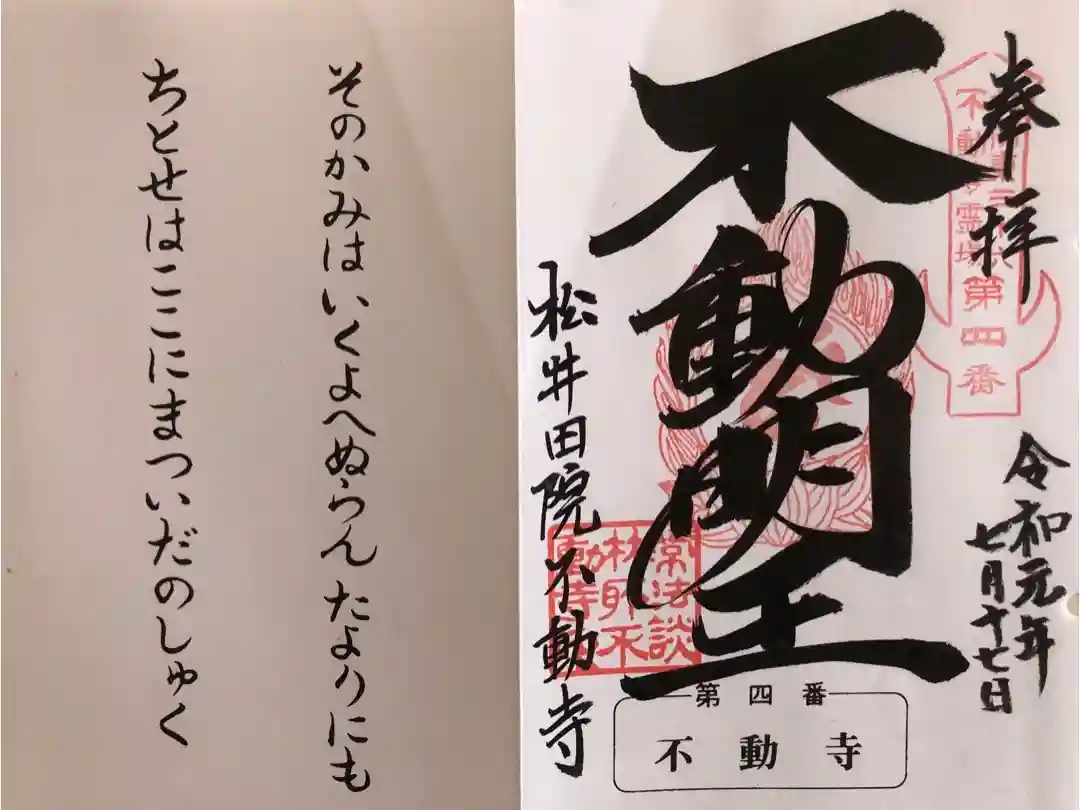 奉拝
不動明王
令和元年
七月十七日
松井田院不動寺
第四番
第四番
不動寺
そのかみはいくよへぬらん たよりにも
ちとせはここにまついだのしゅく